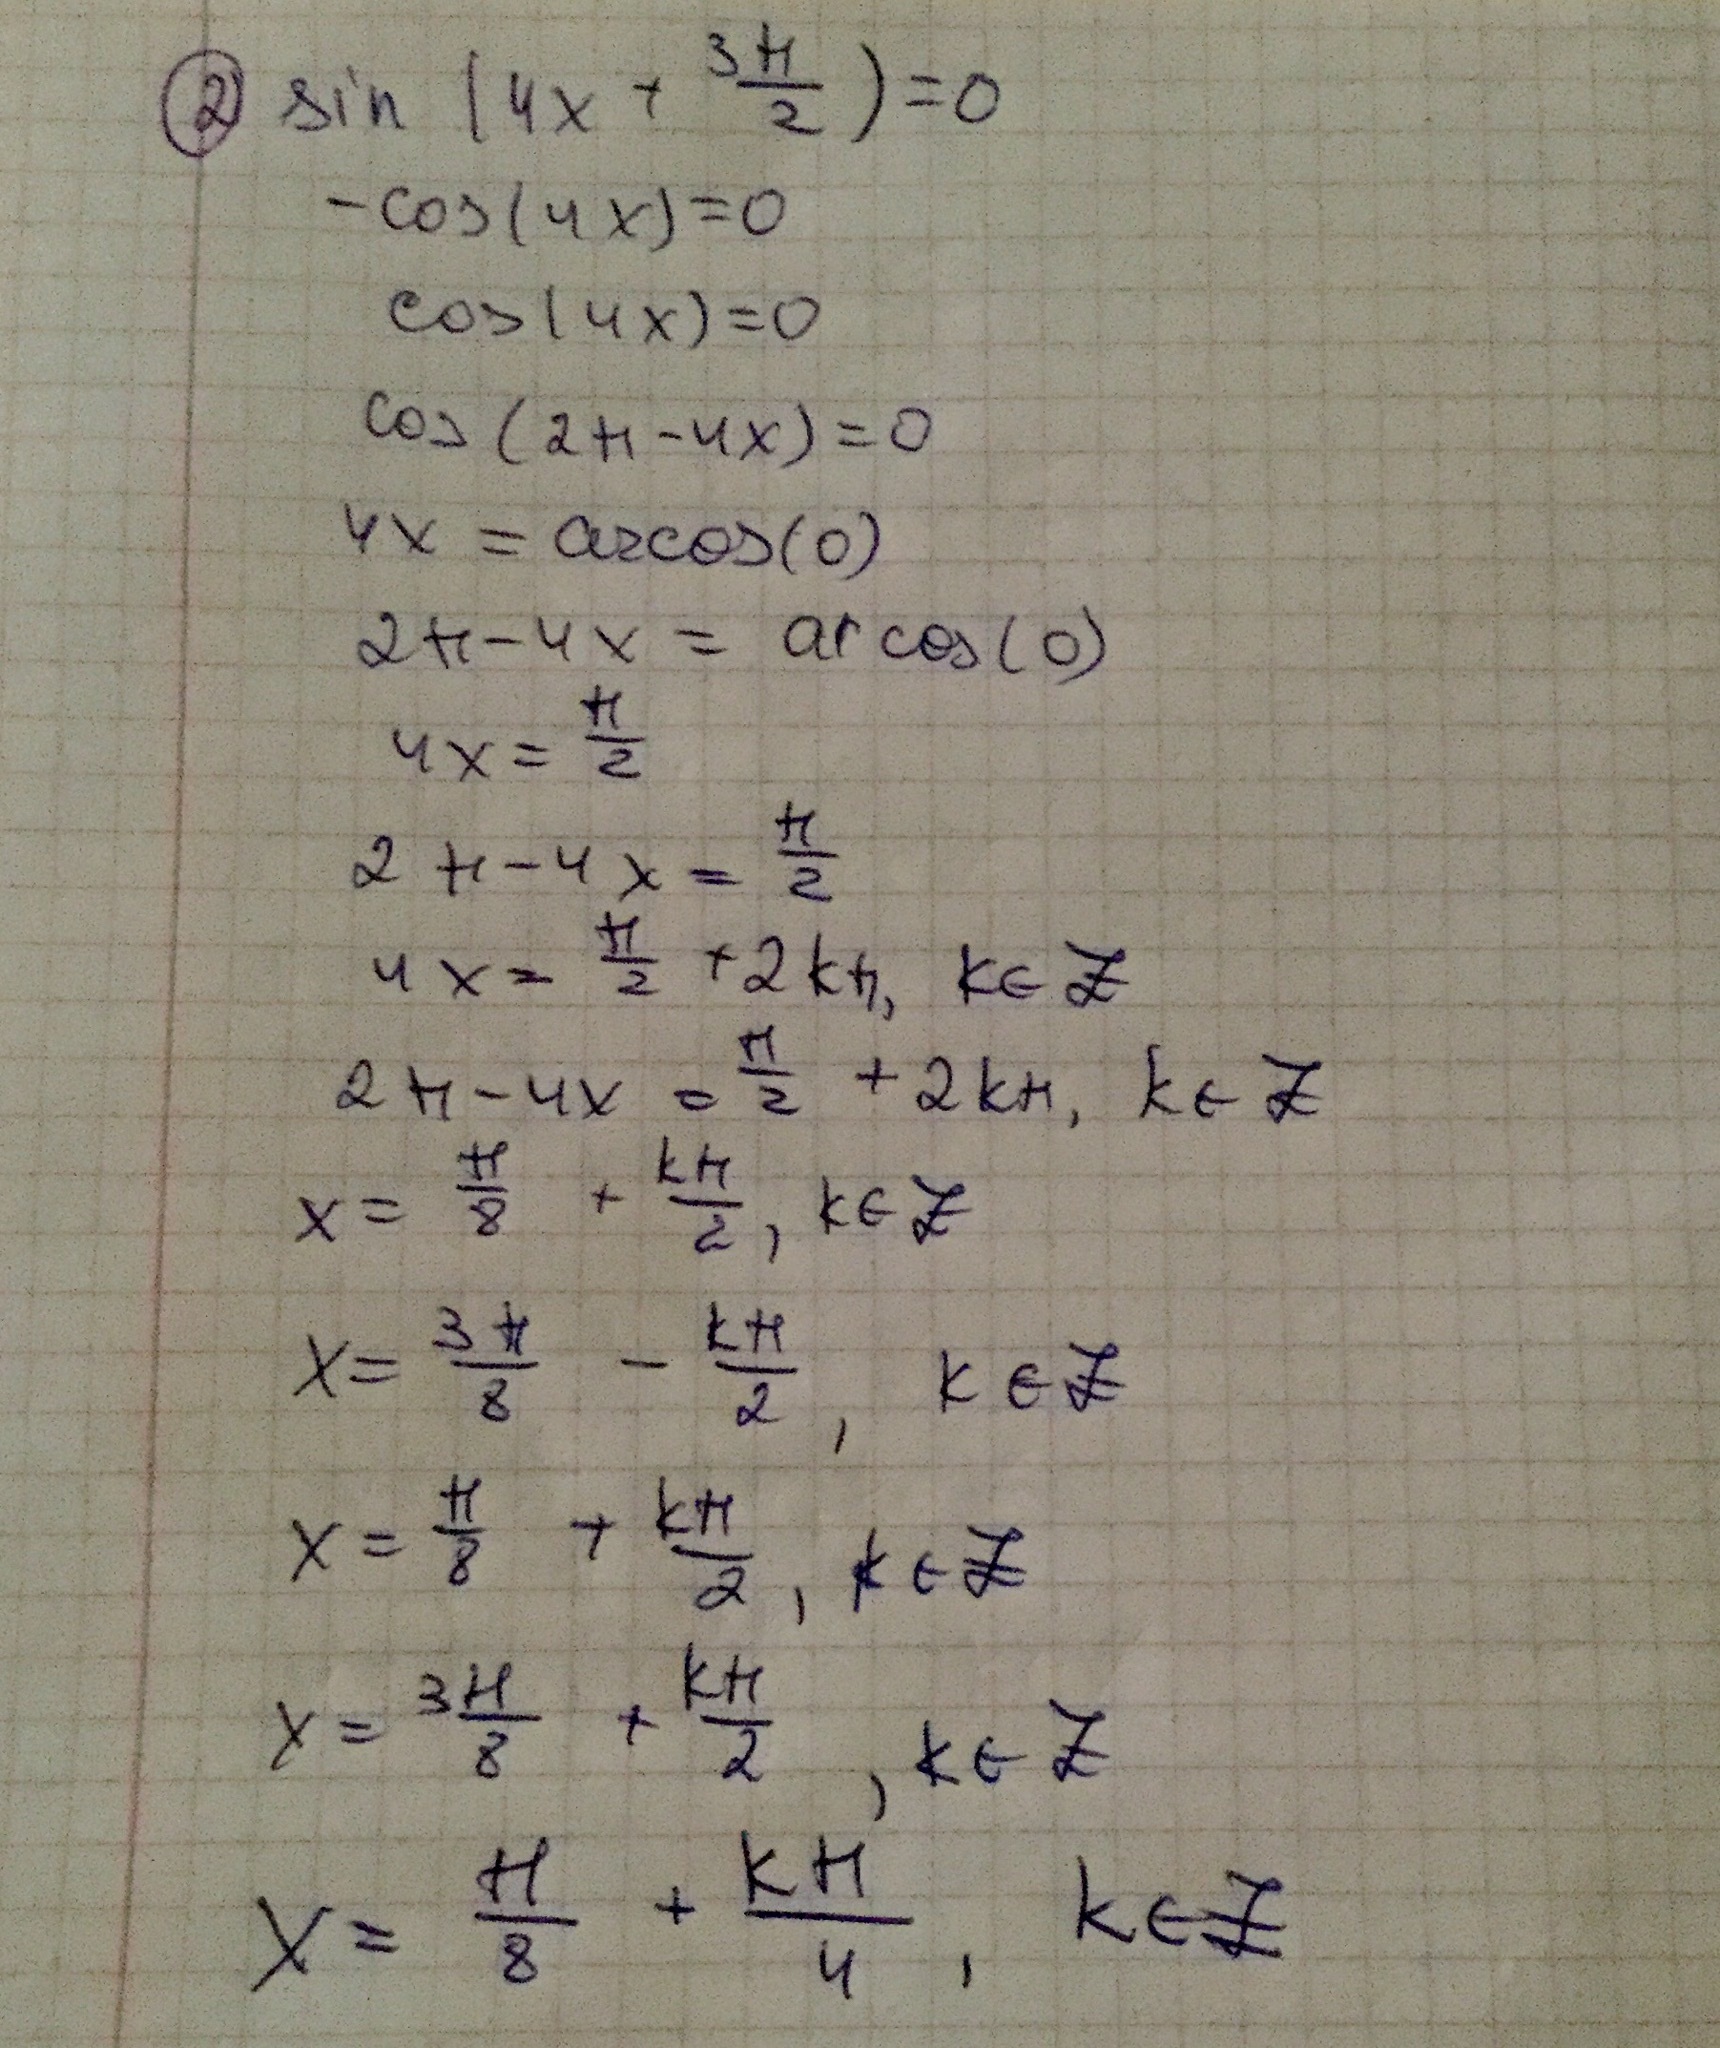 ② sin (4x + 3π/2) = 0
-cos(4x) = 0
cos(4x) = 0
cos (2π - 4x) = 0
4x = arccos(0)
2π - 4x = arcos(0)
4x = π/2
2π - 4x = π/2
4x = π/2 + 2kπ, k ∈ Z
2π - 4x = π/2 + 2kπ, k ∈ Z
x = π/8 + kπ/2, k ∈ Z
x = 3π/8 - kπ/2, k ∈ Z
x = π/8 + kπ/2, k ∈ Z
x = 3π/8 + kπ/2, k ∈ Z
x = π/8 + kπ/4, k ∈ Z